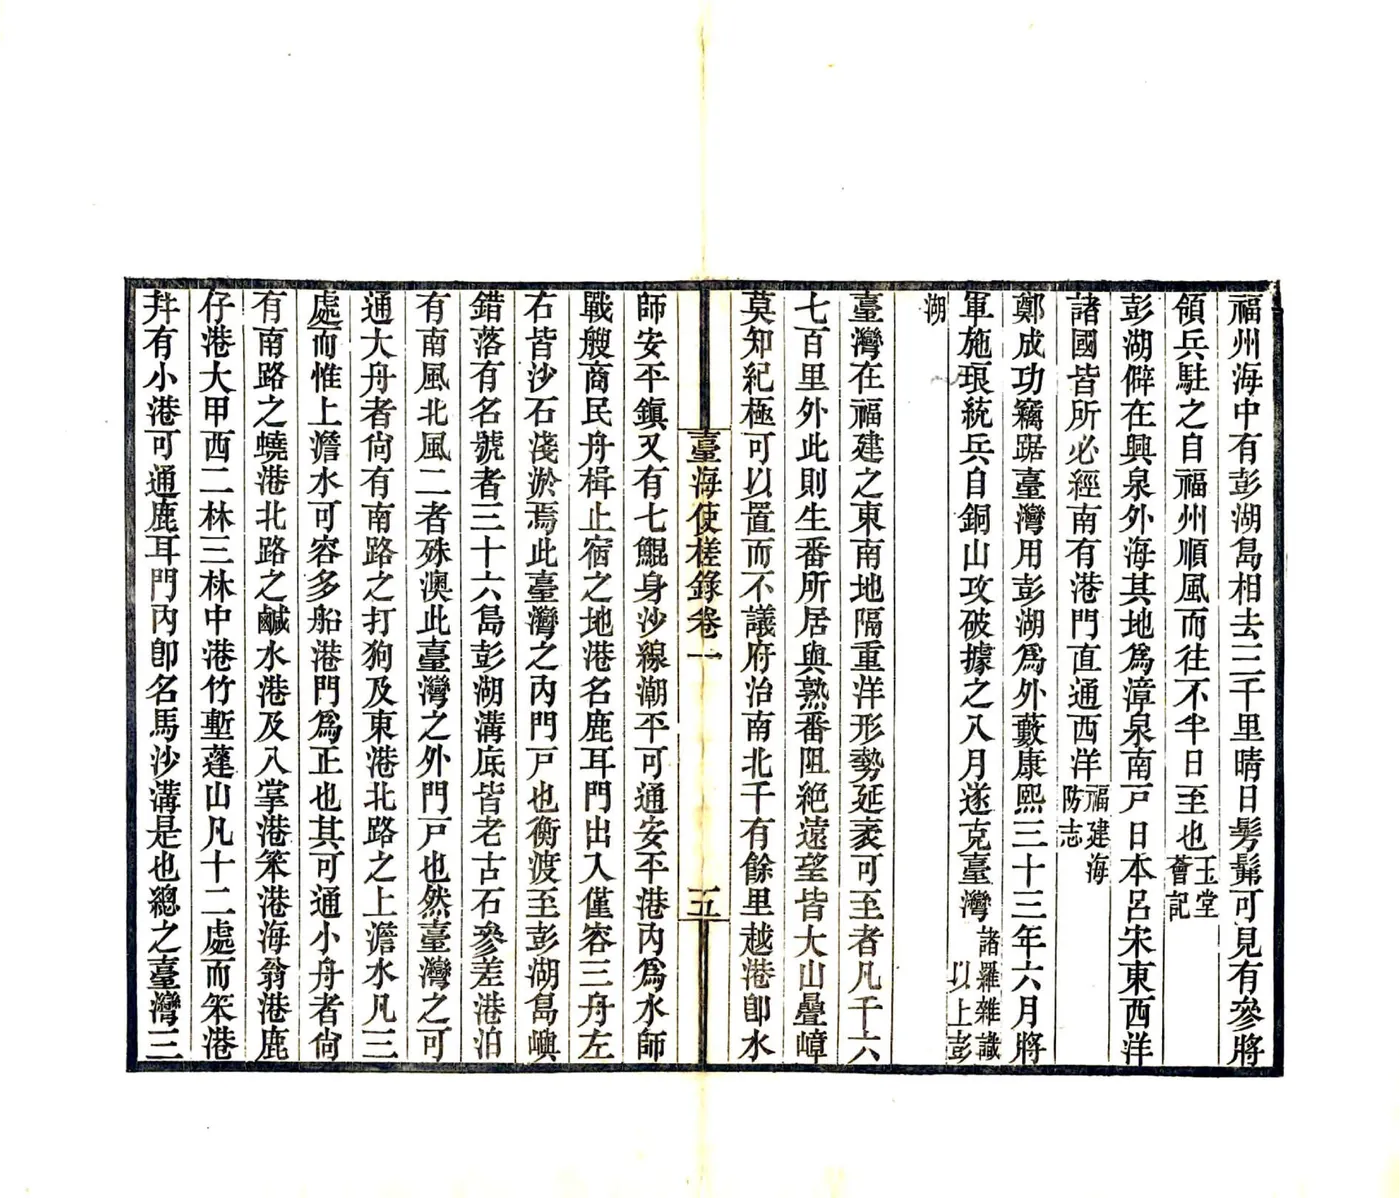 福州海中有彭湖島相去三千里晴日髣髴可見有參將
領兵駐之自福州順風而往不半日至也玉堂薈記
彭湖僻在興泉外海其地爲漳泉南戸日本呂宋東西洋
諸國皆所必經南有港門直通西洋福建海防志
鄭成功竊踞臺灣用彭湖爲外藪康熙三十三年六月將
軍施琅統兵自銅山攻破據之八月遂克臺灣諸羅雜識以上彭
湖
臺灣在福建之東南地隔重洋形勢延袤可至者凡千六
七百里外此則生番所居與熟番阻絶遠望皆大山疊嶂
莫知紀極可以置而不議府治南北千有餘里越港卽水
臺海使槎錄卷一
五
師安平鎮又有七鯤身沙線潮平可通安平港内爲水師
戰艘商民舟楫止宿之地港名鹿耳門出入僅容三舟左
右皆沙石淺淤焉此臺灣之内門戸也衡渡至彭湖島嶼
錯落有名號者三十六島彭湖溝底皆老古石參差港泊
有南風北風二者殊澳此臺灣之外門戸也然臺灣之可
通大舟者尚有南路之打狗及東港北路之上澹水凡三
處而惟上澹水可容多船港門爲正也其可通小舟者尚
有南路之蟯港北路之鹹水港及八掌港笨港海翁港鹿
仔港大甲西二林三林中港竹塹蓬山凡十二處而笨港
幷有小港可通鹿耳門内卽名馬沙溝是也總之臺灣三